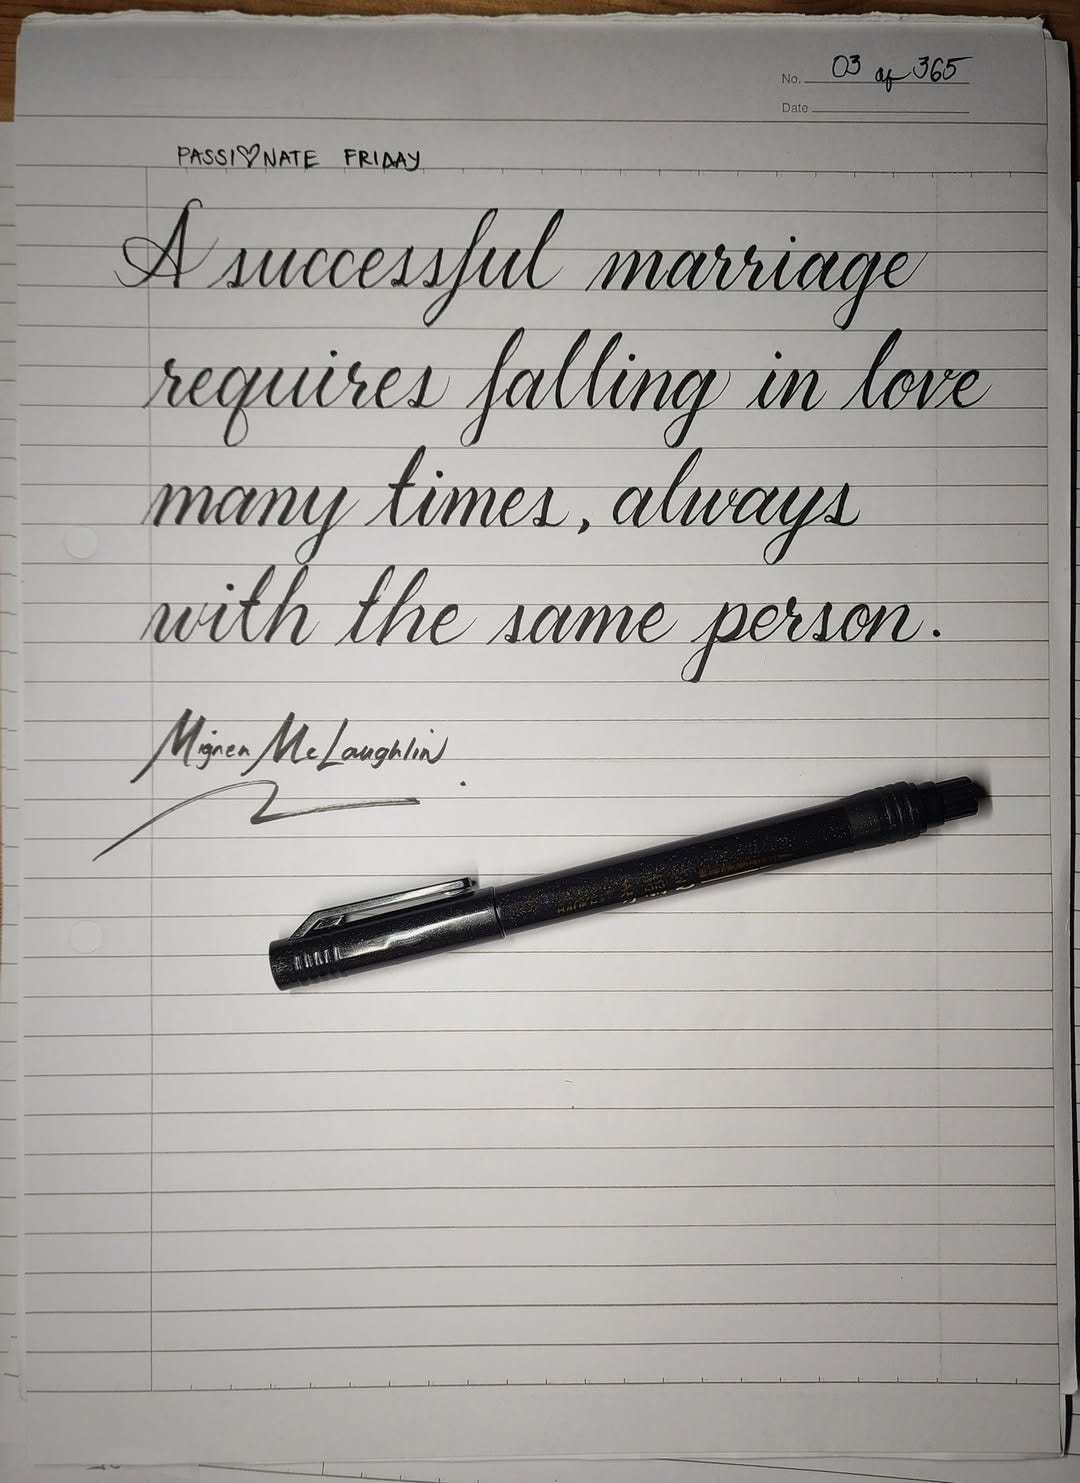 No. 03 of 365
Date
PASSI♡NATE FRIDAY
A successful marriage
requires falling in love
many times, always
with the same person.
Mignen McLaughlin